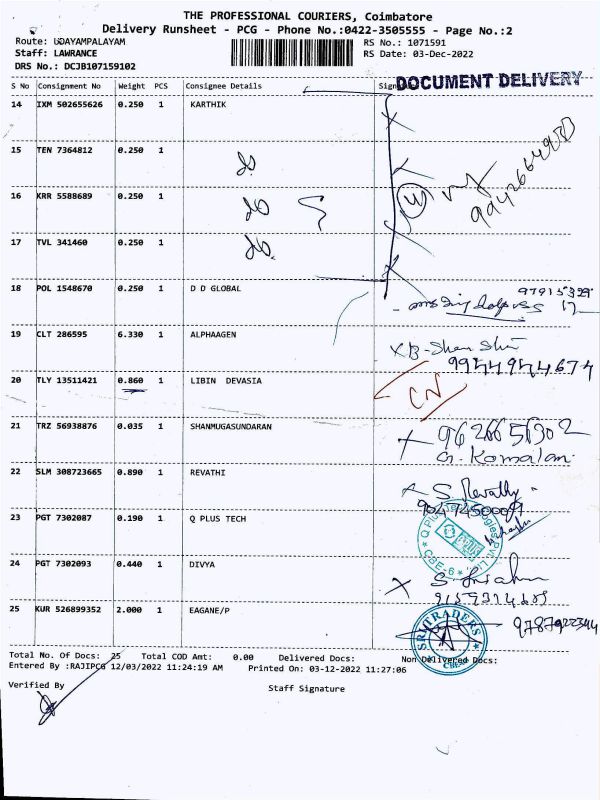 THE PROFESSIONAL COURIERS, Coimbatore
Delivery Runsheet - PCG - Phone No.:0422-3505555 - Page No.:2
Route: UDAYAMPALAYAM
RS No.: 1071591
Staff: LAWRANCE
RS Date: 03-Dec-2022
DRS No.: DCJB107159102
DOCUMENT DELIVERY
S No Consignment No Weight PCS Consignee Details
14 IXM 502655626 0.250 1 KARTHIK
15 TEN 7364812 0.250 1 do
16 KRR 5588689 0.250 1 do
17 TVL 341460 0.250 1 do.
18 POL 1548670 0.250 1 D D GLOBAL
19 CLT 286595 6.330 1 ALPHAAGEN
20 TLY 13511421 0.860 1 LIBIN DEVASIA CN
21 TRZ 56938876 0.035 1 SHANMUGASUNDARAN
G. Komalan.
22 SLM 308723665 0.890 1 REVATHI S. Revathy
23 PGT 7302087 0.190 1 Q PLUS TECH
24 PGT 7302093 0.440 1 DIVYA
25 KUR 526899352 2.000 1 EAGANE/P 9787922344
SRI TRADERS
Total No. Of Docs: 25 Total COD Amt: 0.00 Delivered Docs: Non Delivered Docs:
Entered By :RAJIPCG 12/03/2022 11:24:19 AM Printed On: 03-12-2022 11:27:06
Verified By
Staff Signature